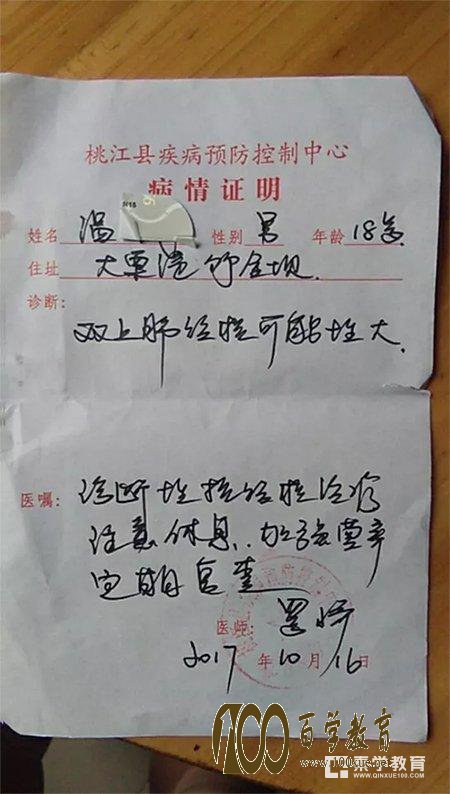 桃江县疾病预防控制中心
病情证明
姓名 温 性别 男 年龄 18岁
住址 大栗港
诊断:
双上肺结核可能性大.
医嘱:
诊断性抗结核治疗
注意休息、加强营养
定期复查
医师:
2017年10月16日
100百学教育
www.100xue.net
亲学教育
www.QINXUE100.COM